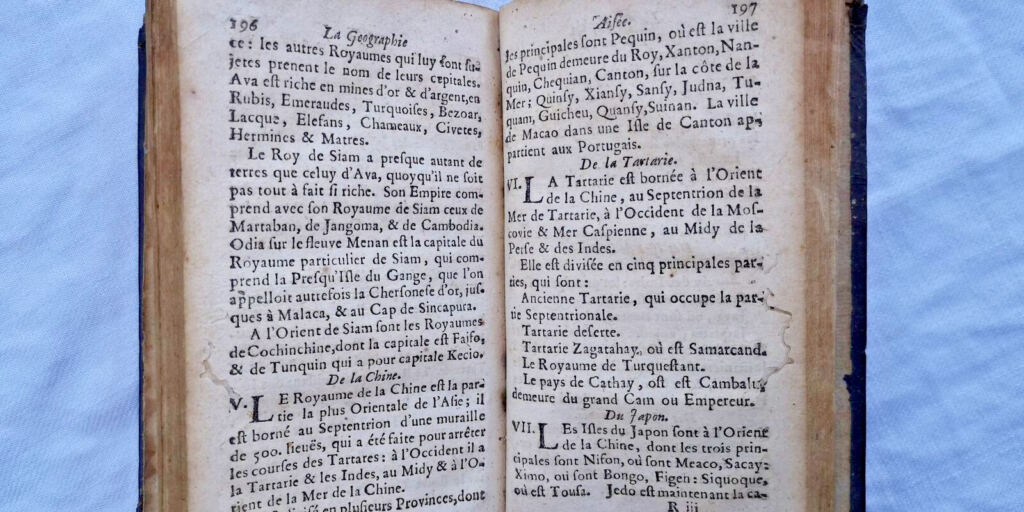 196
La Geographie
te : les autres Royaumes qui luy sont su-
jetes prenent le nom de leurs capitales.
Ava est riche en mines d'or & d'argent, en
Rubis, Emeraudes, Turquoises, Bezoar,
Lacque, Elefans, Chameaux, Civetes,
Hermines & Matres.
Le Roy de Siam a presque autant de
terres que celuy d'Ava, quoyqu'il ne soit
pas tout à fait si riche. Son Empire com-
prend avec son Royaume de Siam ceux de
Martaban, de Jangoma, & de Cambodia.
Odia sur le fleuve Menan est la capitale du
Royaume particulier de Siam, qui com-
prend la Presqu'Isle du Gange, que l'on
appelloit autrefois la Chersonese d'or, jus-
ques à Malaca, & au Cap de Sincapura.
A l'Orient de Siam sont les Royaumes
de Cochinchine, dont la capitale est Faifo,
& de Tunquin qui a pour capitale Kecio.
De la Chine.
V. LE Royaume de la Chine est la par-
tie la plus Orientale de l'Asie; il
est borné au Septentrion d'une muraille
de 500. lieuës, qui a été faite pour arrêter
les courses des Tartares : à l'Occident il a
la Tartarie & les Indes, au Midy & à l'O-
rient de la Mer de la Chine.
en plusieurs Provinces, dont
197
Asiée.
les principales sont Pequin, où est la ville
de Pequin demeure du Roy, Xanton, Nan-
quin, Chequian, Canton, sur la côte de la
Mer; Quinsy, Xiansy, Sansy, Judna, Tu-
quam, Guicheu, Quansy, Suinan. La ville
de Macao dans une Isle de Canton ap-
partient aux Portugais.
De la Tartarie.
VI. LA Tartarie est bornée à l'Orient
de la Chine, au Septentrion de la
Mer de Tartarie, à l'Occident de la Mos-
covie & Mer Caspienne, au Midy de la
Perse & des Indes.
Elle est divisée en cinq principales par-
ties, qui sont :
Ancienne Tartarie, qui occupe la par-
tie Septentrionale.
Tartarie deserte.
Tartarie Zagatahay, où est Samarcand.
Le Royaume de Turquestant.
Le pays de Cathay, ost est Cambalu,
demeure du grand Cam ou Empereur.
Du Japon.
VII. LEs Isles du Japon sont à l'Orient
de la Chine, dont les trois prin-
cipales sont Nison, où sont Meaco, Sacay:
Ximo, où sont Bongo, Figen: Siquoque,
où est Tousa. Jedo est maintenant la ca-
R iij